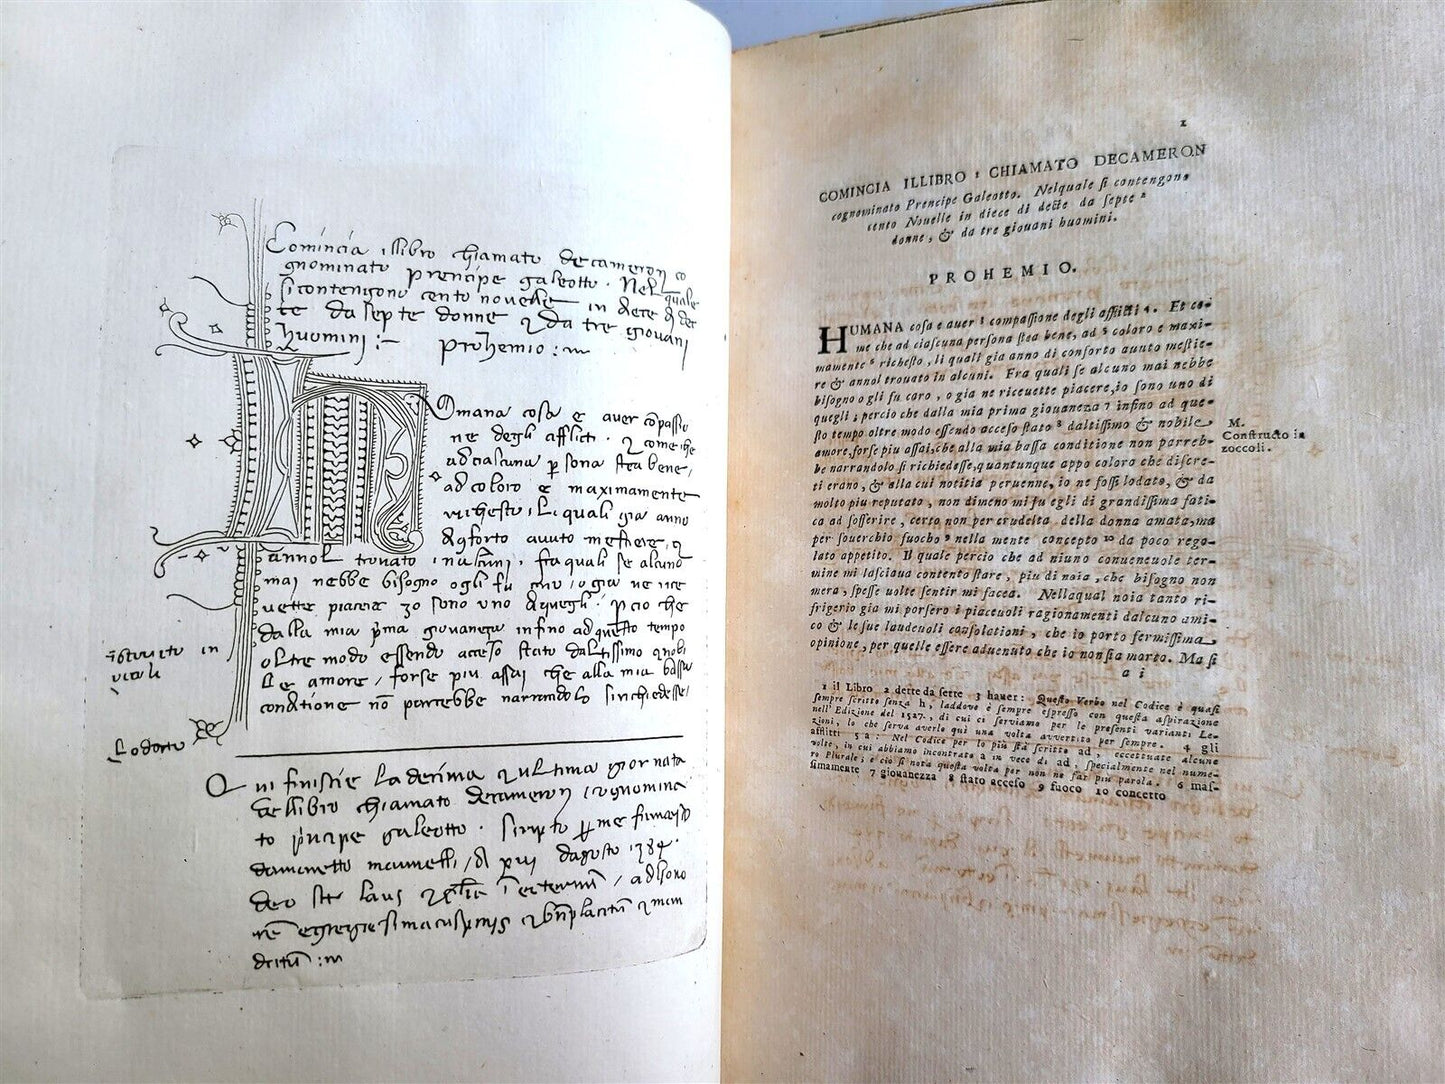 Comincia illibro chiamato decameron co
gnominato prencipe galeotto. Nel quale
si contengono cento novelle in diece di dec
te da septe donne & da tre giovani
huomini :~ prohemio :~
Omana cosa e aver cōpassio
ne degli afflicti. & come che
ad ciascuna p̱sona stea bene,
ad coloro e maximamente
richesto, li quali gia anno
conforto avuto mestiere, &
annol trovato in alcuni. fra quali se alcuno
mai nebbe bisogno ogli fu caro, o gia ne rice
uette piacere io sono uno di quegli. p̱cio che
dalla mia p̄ma giovaneça infino ad questo tempo
oltre modo essendo acceso stato daltissimo & nobi
le amore, forse piu assai che alla mia bassa
conditione nō parrebbe narrandolo si richiedesse,
in
Lodorto
Qui finiscie la decima & ultima giornata
del libro chiamato decameron, cognomina
to prīcipe galeotto. scripto p̱ me francesco
damaretto mannelli, di xiij dagosto 1384.
deo sit laus &
1
COMINCIA ILLIBRO ¹ CHIAMATO DECAMERON
cognominato Prencipe Galeotto. Nelquale si contengono
cento Nouelle in diece di dette da septe ²
donne, & da tre giouani huomini.
PROHEMIO.
HUMANA cosa e auer ³ compassione degli afflitti ⁴. Et co-
me che ad ciascuna persona stea bene, ad ⁵ coloro e maxi-
mamente ⁶ richesto, li quali gia anno di conforto auuto mestie-
re & annol trouato in alcuni. Fra quali se alcuno mai nebbe
bisogno o gli fu caro, o gia ne riceuette piacere, io sono uno di
quegli; percio che dalla mia prima giouaneza ⁷ infino ad que-
sto tempo oltre modo essendo acceso stato ⁸ daltissimo & nobile
amore, forse piu assai, che alla mia bassa conditione non parreb-
be narrandolo si richiedesse, quantunque appo coloro che discre-
ti erano, & alla cui notitia peruenne, io ne fossi lodato, & da
molto piu reputato, non dimeno mi fu egli di grandissima fati-
ca ad sofferire, certo non per crudelta della donna amata, ma
per souerchio fuocho ⁹ nella mente concepto ¹⁰ da poco rego-
lato appetito. Il quale percio che ad niuno conueneuole ter-
mine mi lasciaua contento stare, piu di noia, che bisogno non
mera, spesse uolte sentir mi facea. Nellaqual noia tanto ri-
frigerio gia mi porsero i piaceuoli ragionamenti dalcuno ami-
co & le sue laudeuoli consolationi, che io porto fermissima
opinione, per quelle essere aduenuto che io non sia morto. Ma si
a i
M.
Constructo in
zoccoli.
1 il Libro 2 dette da sette 3 hauer: Questo Verbo nel Codice è quasi
sempre scritto senza h, laddove è sempre espresso con questa aspirazione
nell'Edizione del 1527., di cui ci serviamo per le presenti varianti Le-
zioni, lo che serva averlo qui una volta avvertito per sempre. 4 gli
afflitti 5 a: Nel Codice per lo più stà scritto ad, eccettuate alcune
volte, in cui abbiamo incontrato a in vece di ad, specialmente nel nume-
ro Plurale; e ciò si nota questa volta per non ne far più parola. 6 mas-
simamente 7 giouanezza 8 stato acceso 9 fuoco 10 concetto